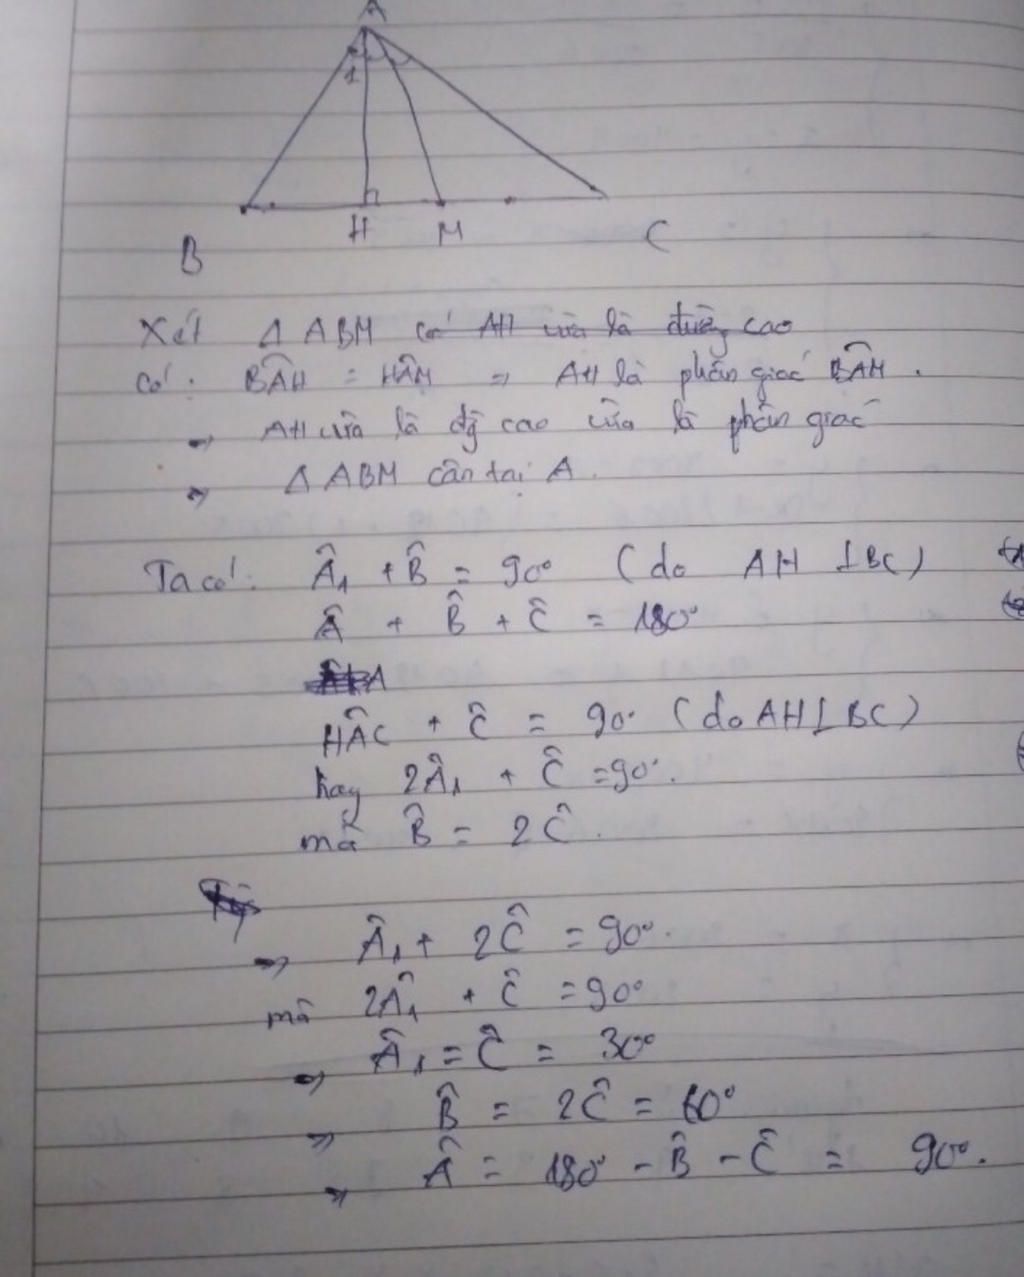 A
1
H M
B C
Xét Δ ABM có AH vừa là đường cao
Có: BÂH = HÂM => AH là phân giác BÂM.
=> AH vừa là đg cao vừa là phân giác
=> Δ ABM cân tại A.
Ta có: Â₁ + B̂ = 90° (do AH ⊥ BC)
Â + B̂ + Ĉ = 180°
HÂC + Ĉ = 90° (do AH ⊥ BC)
hay 2Â₁ + Ĉ = 90°.
mà B̂ = 2Ĉ.
=> Â₁ + 2Ĉ = 90°.
mà 2Â₁ + Ĉ = 90°
=> Â₁ = Ĉ = 30°
=> B̂ = 2Ĉ = 60°
=> Â = 180° - B̂ - Ĉ = 90°.